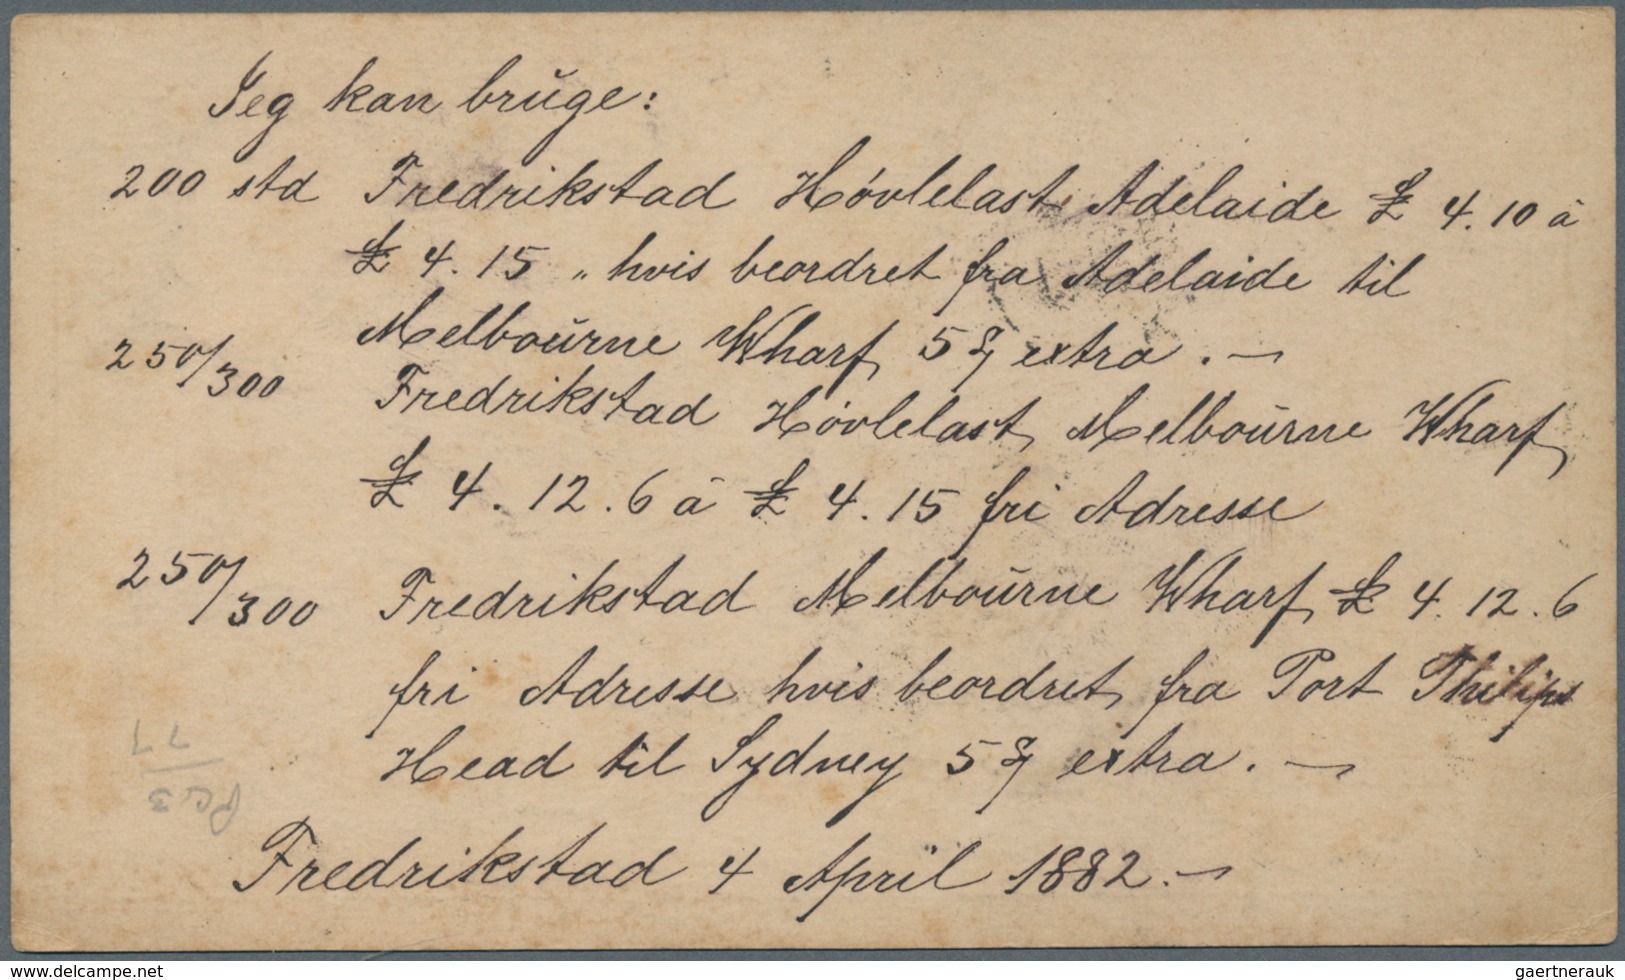 Jeg kan brŭge:
200 std Fredrikstad Høvlelast Adelaide £ 4.10 à
£ 4.15 „ hvis beordret fra Adelaide til
Melboŭrne Wharf 5 ẞ extra . —
250/300 Fredrikstad Høvlelast Melboŭrne Wharf
£ 4.12.6 à £ 4.15 fri Adresse
250/300 Fredrikstad Melboŭrne Wharf £ 4.12.6
fri Adresse hvis beordret fra Port Philips
Head til Sydney 5 ẞ extra . —
Fredrikstad 4 April 1882. —
PC 3
77
www.delcampe.net
gaertnerauk